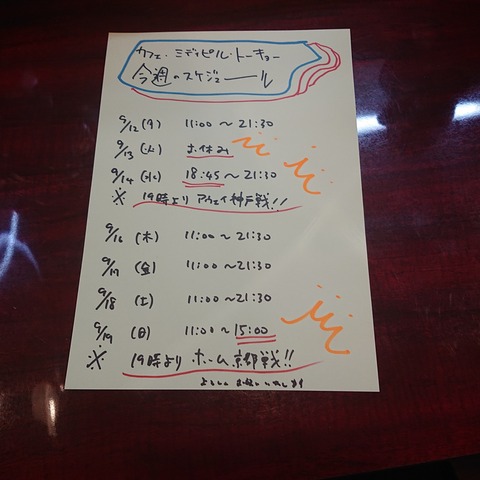 カフェ・ミディピル・トーキョー
今週のスケジュール
9/12(月) 11:00〜21:30
9/13(火) お休み
9/14(水) 18:45〜21:30
※ 19時より アウェイ神戸戦!!
9/16(木) 11:00〜21:30
9/17(金) 11:00〜21:30
9/18(土) 11:00〜21:30
9/19(日) 11:00〜15:00
※ 19時より ホーム京都戦!!
よろしくお願いいたします